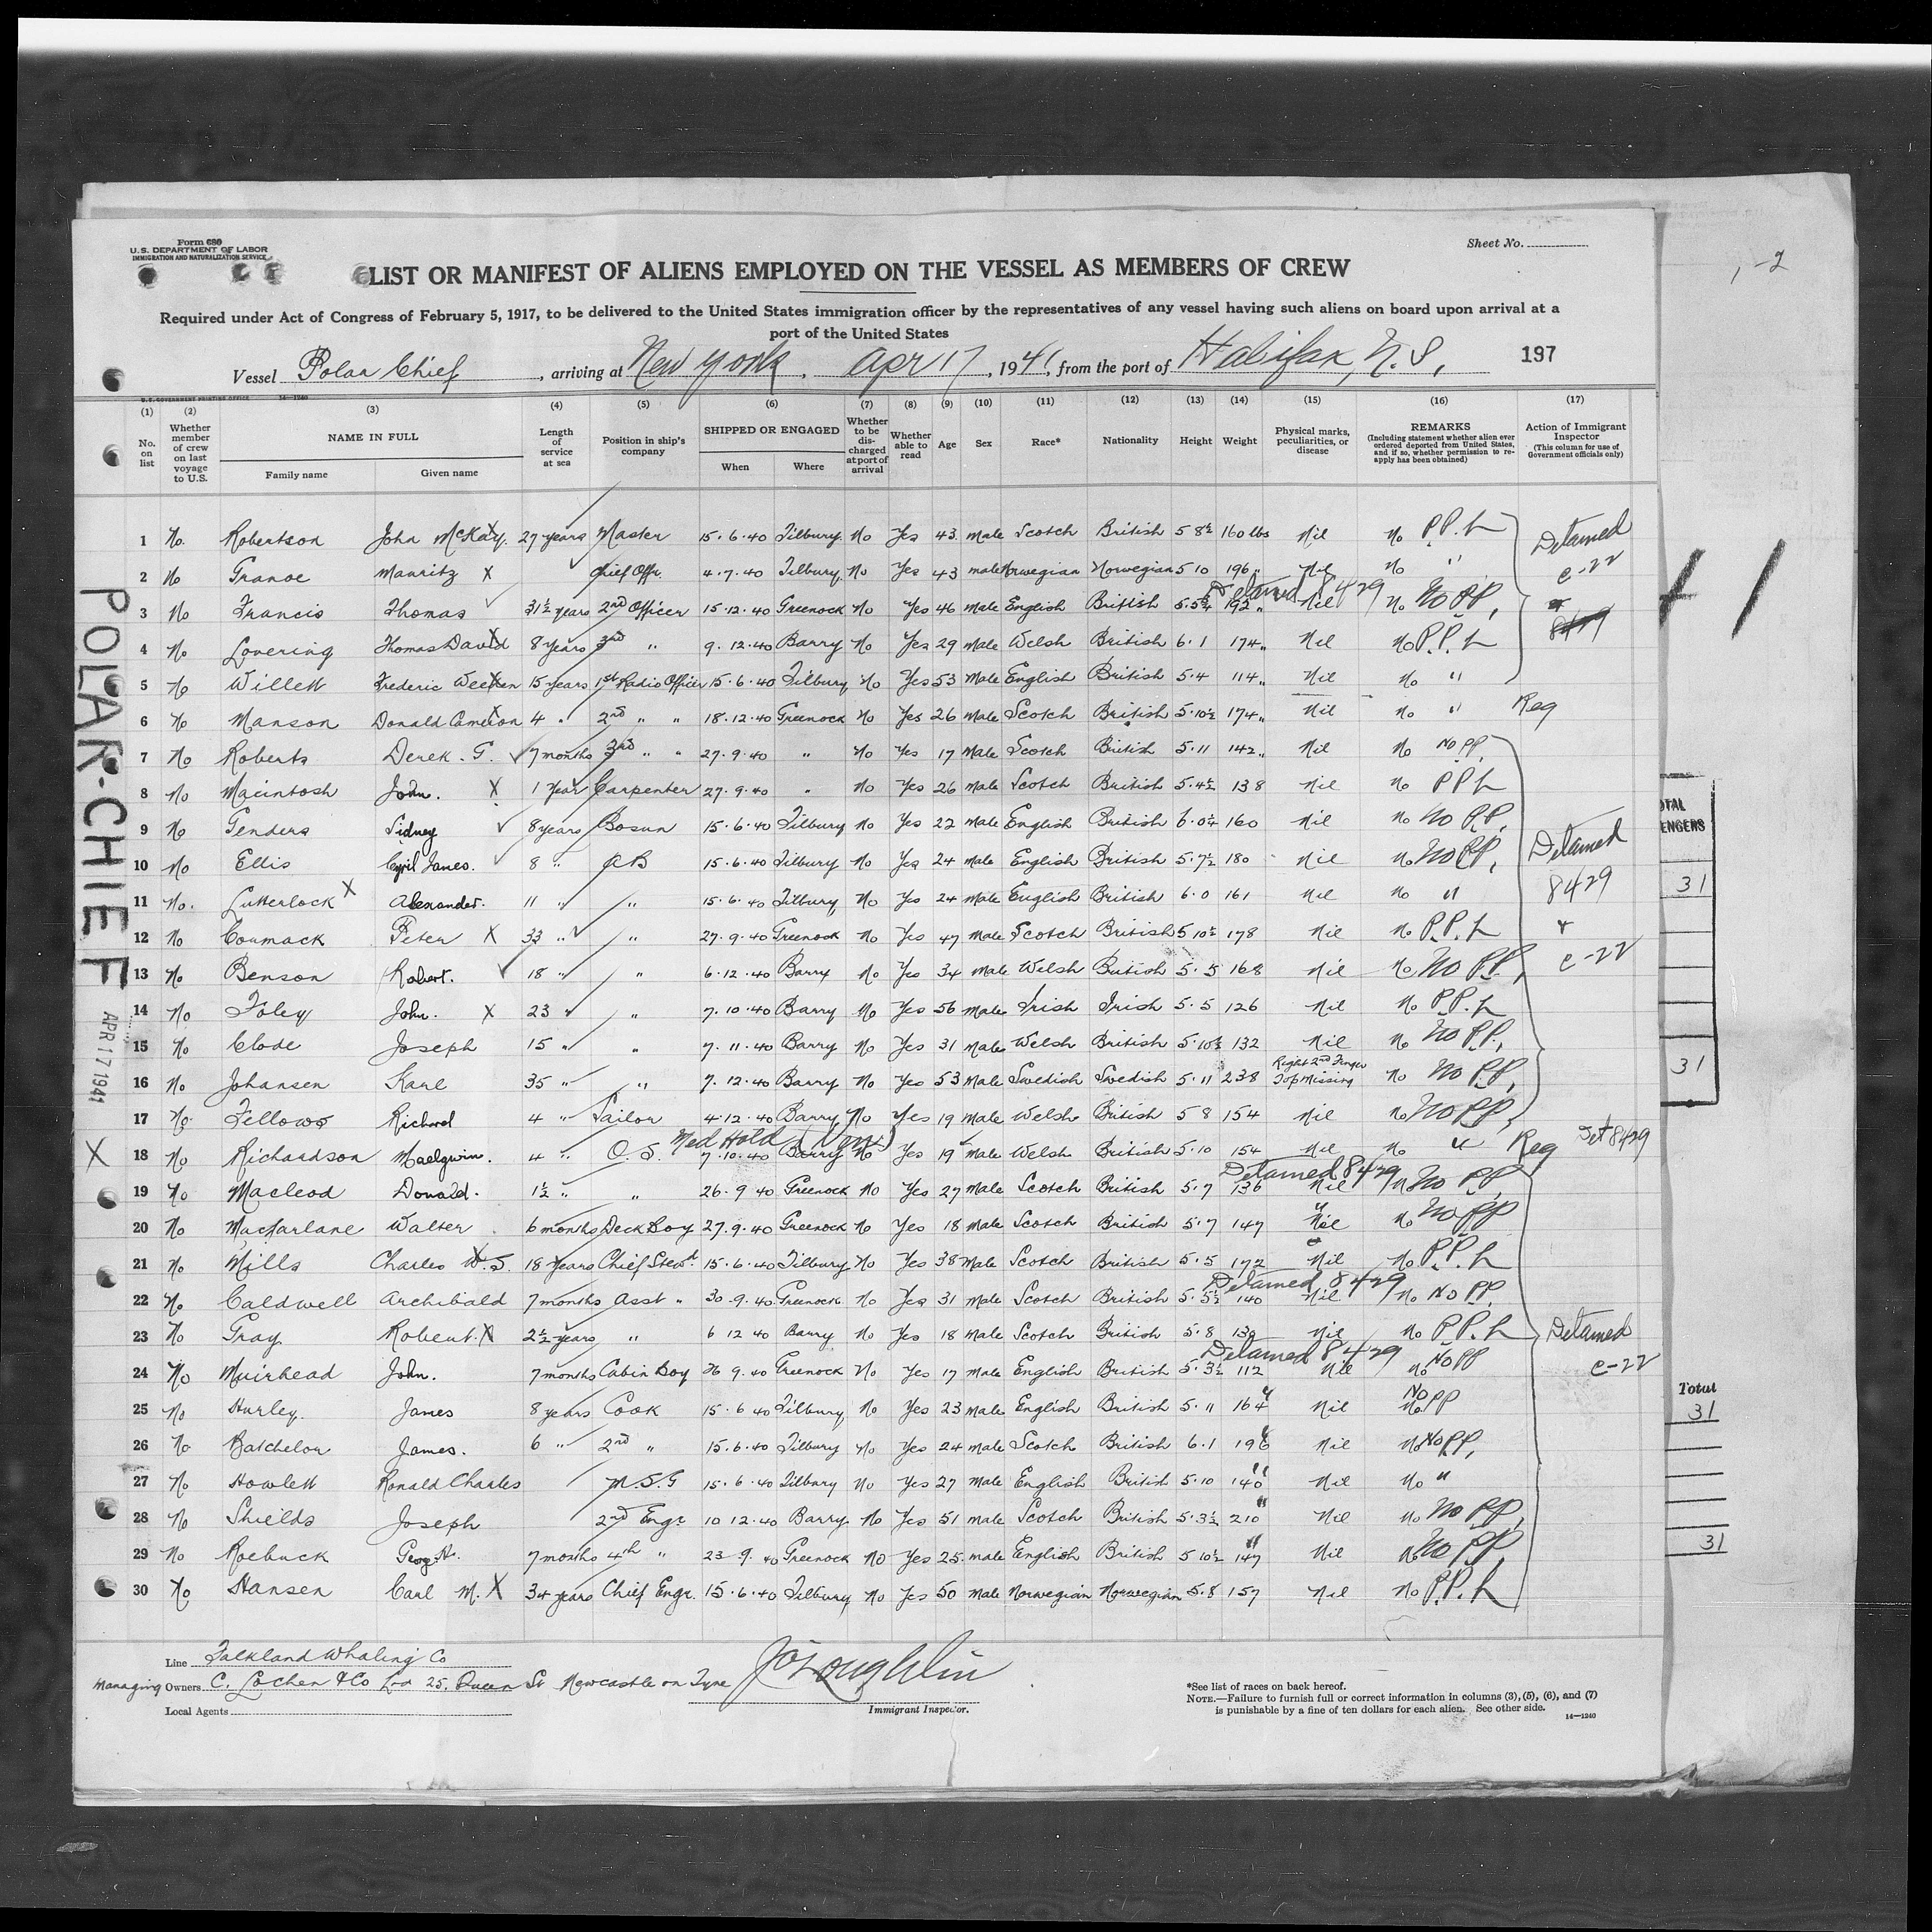 Form 680
U.S. DEPARTMENT OF LABOR
IMMIGRATION AND NATURALIZATION SERVICE
Sheet No.
LIST OR MANIFEST OF ALIENS EMPLOYED ON THE VESSEL AS MEMBERS OF CREW
Required under Act of Congress of February 5, 1917, to be delivered to the United States immigration officer by the representatives of any vessel having such aliens on board upon arrival at a
port of the United States
Vessel Polar Chief, arriving at New York, Apr 17, 1941, from the port of Halifax, N.S. 197
U.S. GOVERNMENT PRINTING OFFICE 14—1240
(1) (2) (3) (4) (5) (6) (7) (8) (9) (10) (11) (12) (13) (14) (15) (16) (17)
No. on list
Whether member of crew on last voyage to U.S.
NAME IN FULL
Family name Given name
Length of service at sea
Position in ship's company
SHIPPED OR ENGAGED
When Where
Whether to be discharged at port of arrival
Whether able to read
Age
Sex
Race*
Nationality
Height
Weight
Physical marks, peculiarities, or disease
REMARKS
(Including statement whether alien ever ordered deported from United States, and if so, whether permission to reapply has been obtained)
Action of Immigrant Inspector
(This column for use of Government officials only)
1 No. Robertson John McKay. X 27 years Master 15.6.40 Tilbury No Yes 43 Male Scotch British 5 8½ 160 lbs Nil No P.P.L Detained
2 No Granoe Mauritz X Chief Offr. 4.7.40 Tilbury No Yes 43 male Norwegian Norwegian 5 10 196 " Nil No " C-22
3 No Francis Thomas 31½ years 2nd Officer 15.12.40 Greenock No Yes 46 Male English British 5.5¾ 192 " Nil Detained 8429 No No PP, 8429
4 No Lovering Thomas David X 8 years 3rd " 9.12.40 Barry No Yes 29 Male Welsh British 6.1 174 " Nil No P.P.L
5 No Willett Frederic X 15 years 1st Radio Officer 15.6.40 Tilbury No Yes 53 Male English British 5.4 114 " Nil No "
6 No Manson Donald Cameron X 4 " 2nd " " 18.12.40 Greenock No Yes 26 Male Scotch British 5.10½ 174 " Nil No " Reg
7 No Roberts Derek. G. 7 months 3rd " " 27.9.40 " No Yes 17 Male Scotch British 5.11 142 " Nil No No PP
8 No Macintosh John. X 1 Year Carpenter 27.9.40 " No Yes 26 Male Scotch British 5.4½ 138 Nil No PPL
9 No Genders Sidney 8 years Bosun 15.6.40 Tilbury No Yes 22 Male English British 6.0¼ 160 Nil No No PP.
10 No Ellis Cyril James. 8 " AB 15.6.40 Tilbury No Yes 24 Male English British 5.7½ 180 Nil No No PP, Detained
11 No. Lutterlock X Alexander. 11 " " 15.6.40 Tilbury No Yes 24 Male English British 6.0 161 Nil No " 8429
12 No Cormack Peter X 33 " " 27.9.40 Greenock No Yes 47 Male Scotch British 5 10½ 178 Nil No P.P.L
13 No Benson Robert. 18 " " 6.12.40 Barry No Yes 34 Male Welsh British 5.5 168 Nil No No PP, C-22
14 No Foley John. X 23 " " 7.10.40 Barry No Yes 56 Male Irish Irish 5.5 126 Nil No P.P.L
15 No Clode Joseph 15 " " 7.11.40 Barry No Yes 31 Male Welsh British 5.10½ 132 Nil No No P.P.,
16 No Johansen Karl 35 " " 7.12.40 Barry No Yes 53 Male Swedish Swedish 5.11 238 Right 2nd Finger Top Missing No No PP,
17 No. Fellows Richard 4 " Sailor 4.12.40 Barry No Yes 19 Male Welsh British 5 8 154 Nil No No PP,
X 18 No Richardson Maelgwin. 4 " O.S. Med Hold (Ven) 7.10.40 Barry No Yes 19 Male Welsh British 5.10 154 Nil No " Reg Det 8429
19 No Macleod Donald. 1½ " " 26.9.40 Greenock No Yes 27 Male Scotch British 5.7 136 Nil Detained 8429 No PP,
20 No Macfarlane Walter 6 months Deck Boy 27.9.40 Greenock No Yes 18 Male Scotch British 5.7 147 " Nil No No PP
21 No Mills Charles W.S. X 18 years Chief Stewd. 15.6.40 Tilbury No Yes 38 Male Scotch British 5.5 172 Nil No P.P.L
22 No Caldwell Archibald 7 months Asst " 30.9.40 Greenock No Yes 31 Male Scotch British 5.5½ 140 Nil Detained 8429 No No PP.
23 No Gray Robert. X 2½ years " 6 12 40 Barry No Yes 18 Male Scotch British 5.8 Nil No P.P.L Detained
24 No Muirhead John. 7 months Cabin Boy 26 9.40 Greenock No Yes 17 Male English British 5.3½ 112 Nil Detained 8429 No No PP C-22
25 No Hurley. James 8 years Cook 15.6 40 Tilbury No Yes 23 Male English British 5.11 164 " Nil No No PP
26 No Batchelor James. 6 " 2nd " 15.6.40 Tilbury No Yes 24 Male Scotch British 6.1 196 " Nil No No PP,
27 No Howlett Ronald Charles M.S.G 15.6.40 Tilbury No Yes 27 Male English British 5.10 140 " Nil No "
28 No Shields Joseph 2nd Engr. 10 12.40 Barry No Yes 51 male Scotch British 5.3½ 210 " Nil No No PP,
29 No Roebuck Geog. H. 7 months 4th " 23.9.40 Greenock No Yes 25 male English British 5 10½ 147 " Nil No No PP,
30 No Hansen Carl M. X 34 years Chief Engr. 15.6.40 Tilbury No Yes 50 Male Norwegian Norwegian 5.8 157 Nil No P.P.L
Line Falkland Whaling Co
Managing Owners C. Lochen & Co Ltd 25, Queen St Newcastle on Tyne
Local Agents
Immigrant Inspector.
*See list of races on back hereof.
NOTE.—Failure to furnish full or correct information in columns (3), (5), (6), and (7)
is punishable by a fine of ten dollars for each alien. See other side.
14—1240
POLAR-CHIEF
APR 17 1941
1-2
31
31
Total
31
31